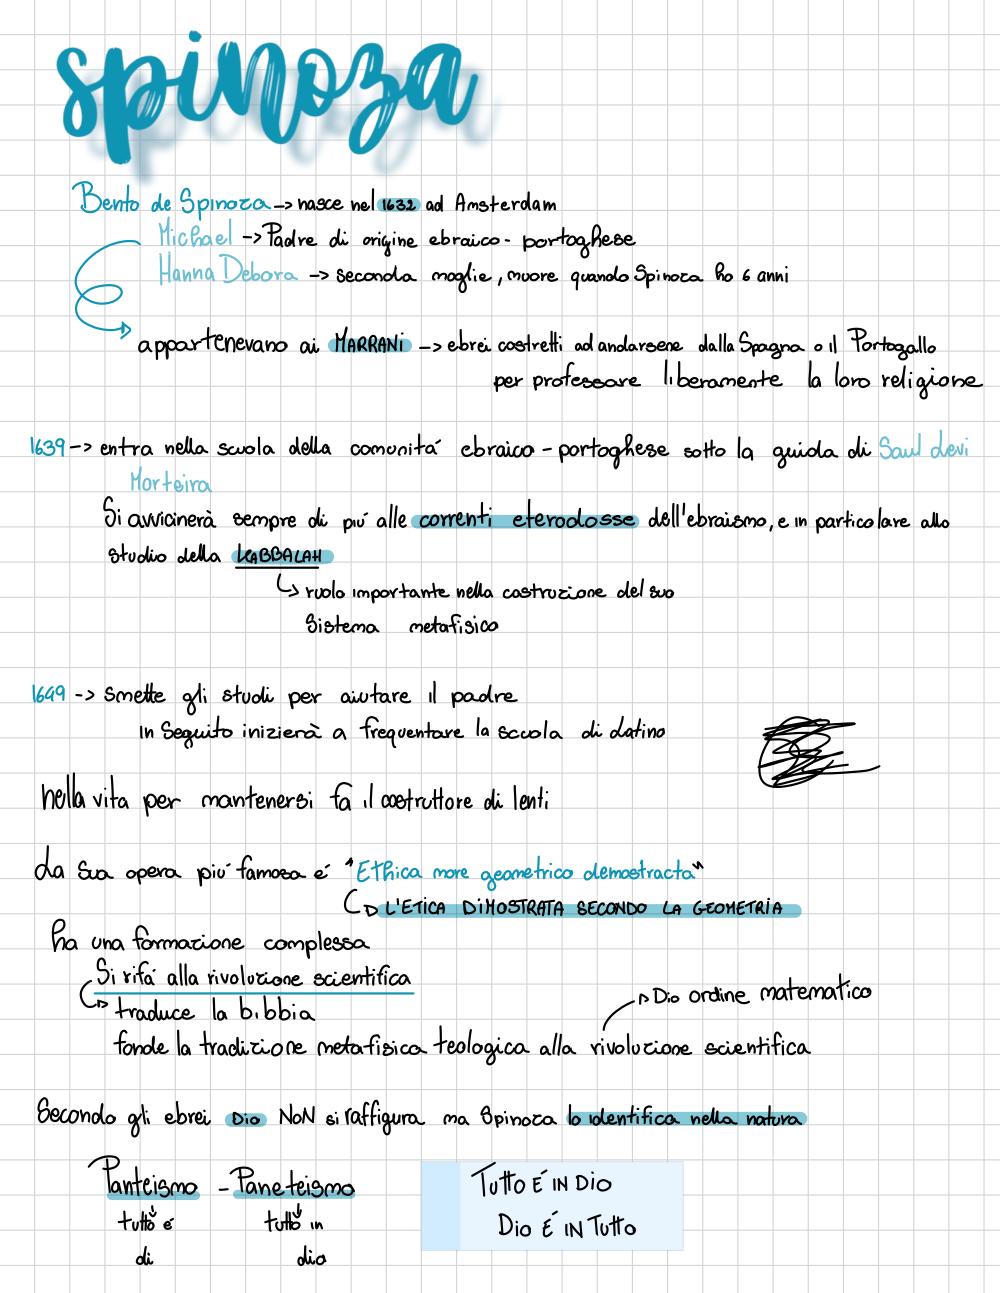 spinoza
Bento de Spinoza -> nasce nel 1632 ad Amsterdam
Michael -> Padre di origine ebraico - portoghese
Hanna Debora -> seconda moglie, muore quando Spinoza ho 6 anni
appartenevano ai MARRANI -> ebrei costretti ad andarsene dalla Spagna o il Portogallo
per professare liberamente la loro religione
1639 -> entra nella scuola della comunitá ebraico - portoghese sotto la guida di Saul Levi
Morteira
Si avvicinerà sempre di piú alle correnti eterodosse dell'ebraismo, e in particolare allo
studio della KABBALAH
↳ ruolo importante nella costruzione del suo
Sistema metafisico
1649 -> Smette gli studi per aiutare il padre
In Seguito inizierà a frequentare la scuola di Latino
nella vita per mantenersi fa il costruttore di lenti
La Sua opera piú famosa é "Ethica more geometrico demostracta"
L'ETICA DIMOSTRATA SECONDO LA GEOMETRIA
ha una formazione complessa
Si rifá alla rivoluzione scientifica
traduce la bibbia
Dio ordine matematico
fonde la tradizione metafisica teologica alla rivoluzione scientifica
Secondo gli ebrei Dio NON si raffigura ma Spinoza lo identifica nella natura
Panteismo - Paneteismo
tutto é tutto in
di dio
TUTTO É IN DIO
DIO É IN TUTTO